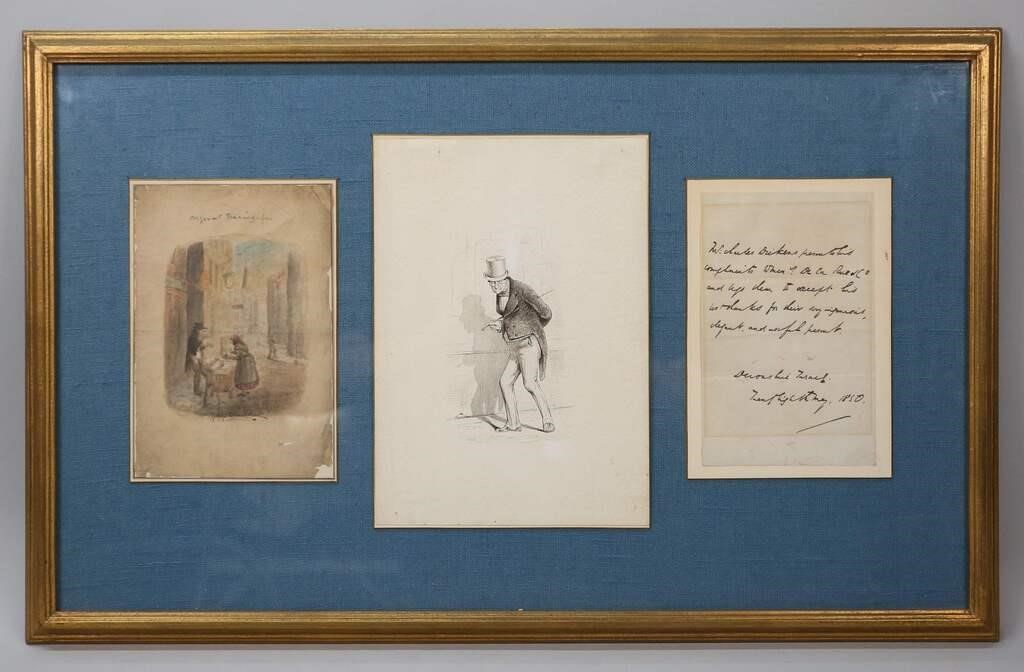 Original Drawing for
Mr. Charles Dickens presents his
compliments to Messrs. De La Rue & Co
and begs them to accept his
thanks for their very ingenious,
elegant, and useful present.
Devonshire Terrace.
Twenty Eighth May, 1850.